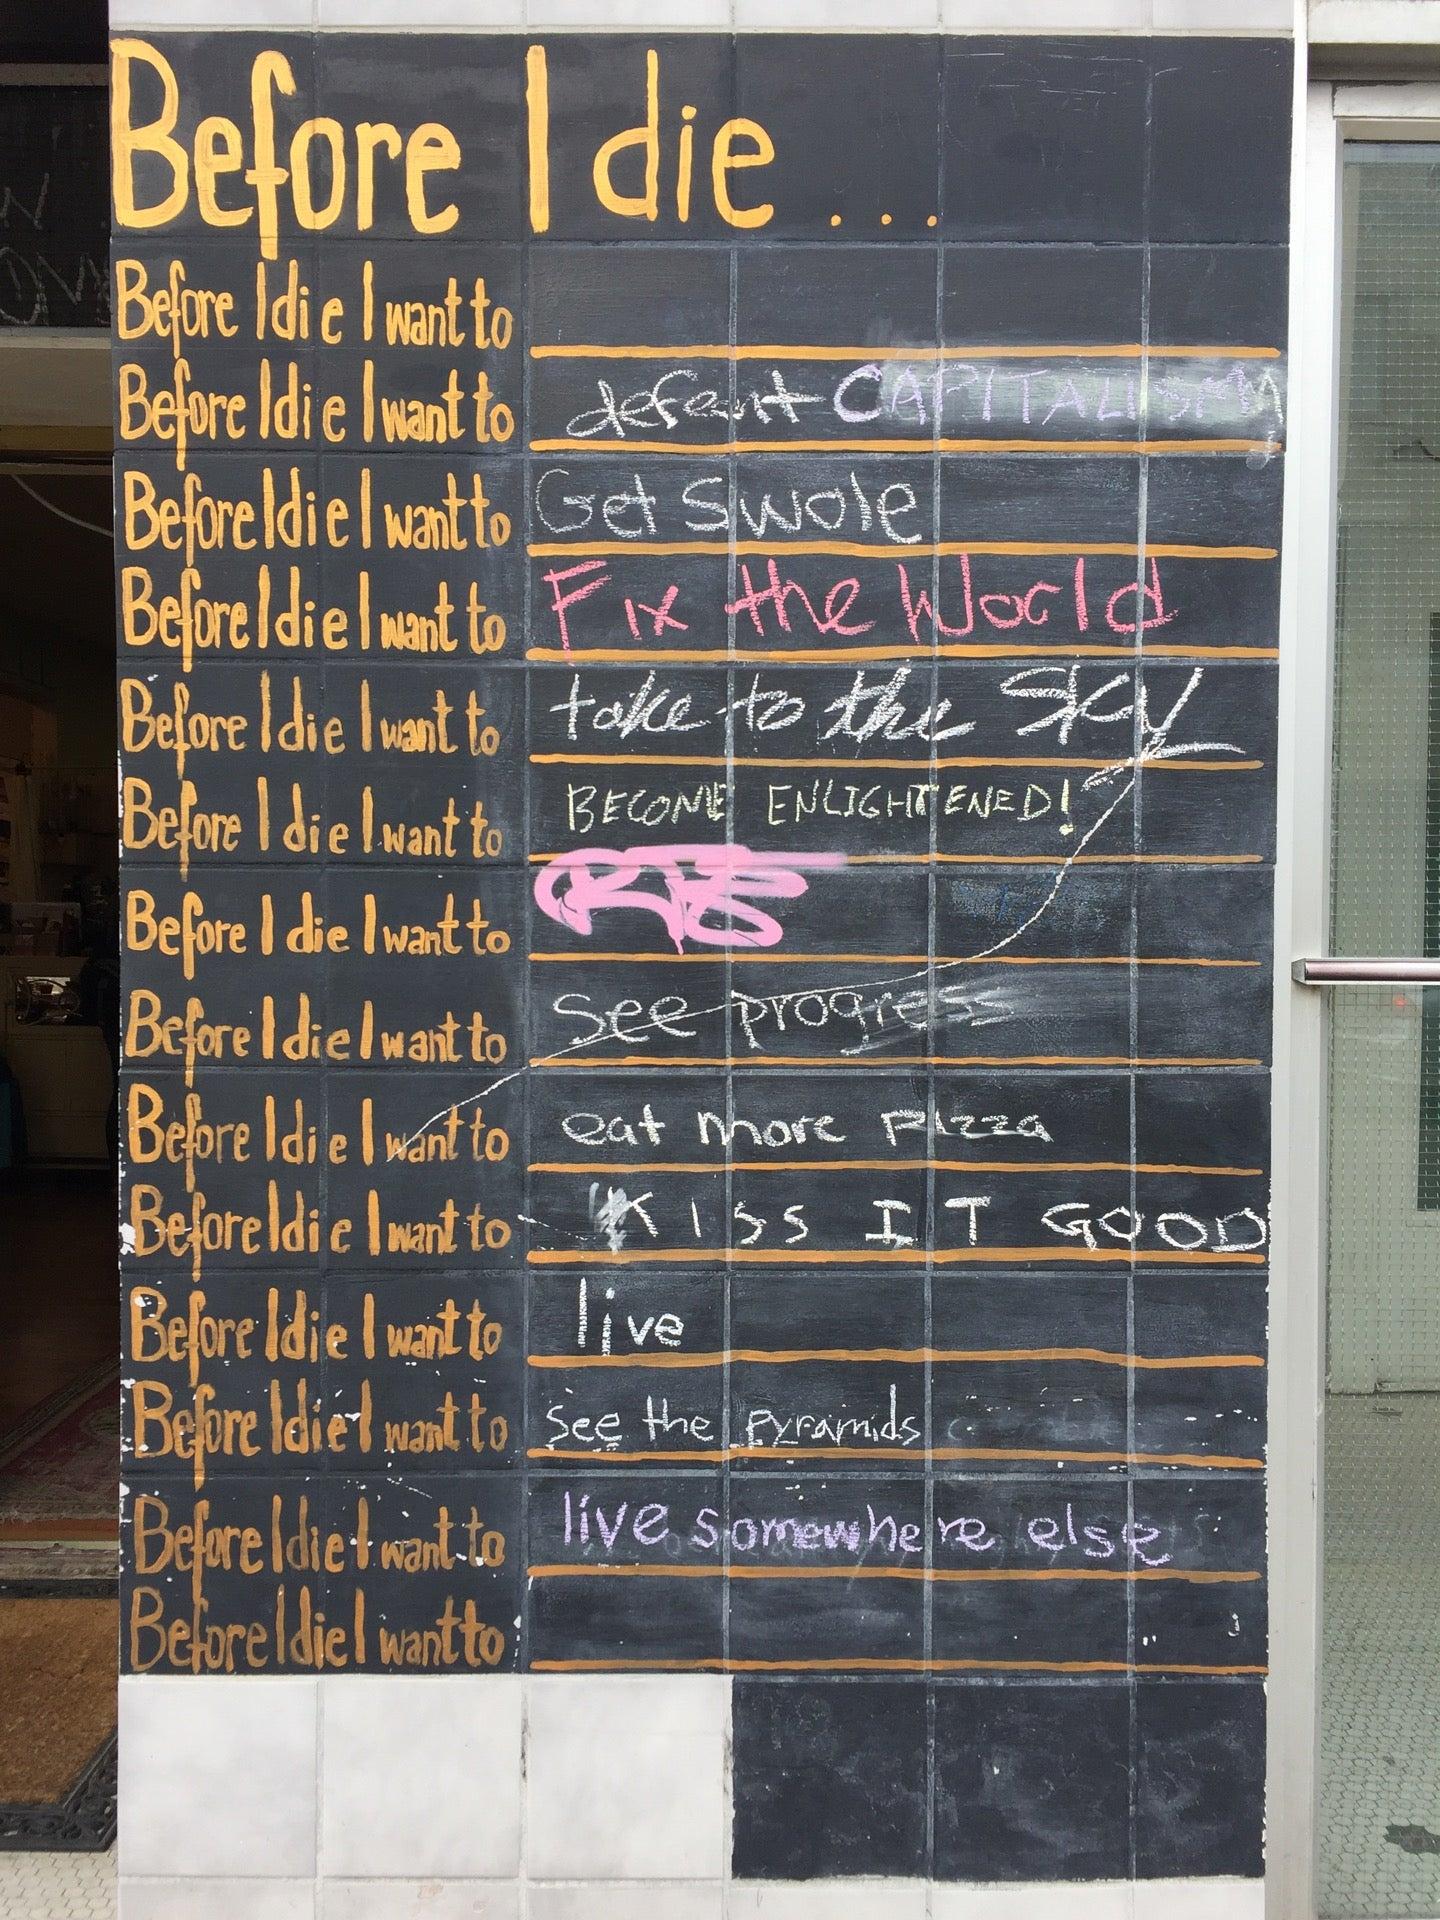 Before I die...
Before I die I want to
Before I die I want to defeat CAPITALISM
Before I die I want to Get Swole
Before I die I want to Fix the World
Before I die I want to take to the Sky
Before I die I want to BECOME ENLIGHTENED!
Before I die I want to
Before I die I want to See progress
Before I die I want to eat more pizza
Before I die I want to KISS IT GOOD
Before I die I want to live
Before I die I want to see the pyramids
Before I die I want to live somewhere else
Before I die I want to